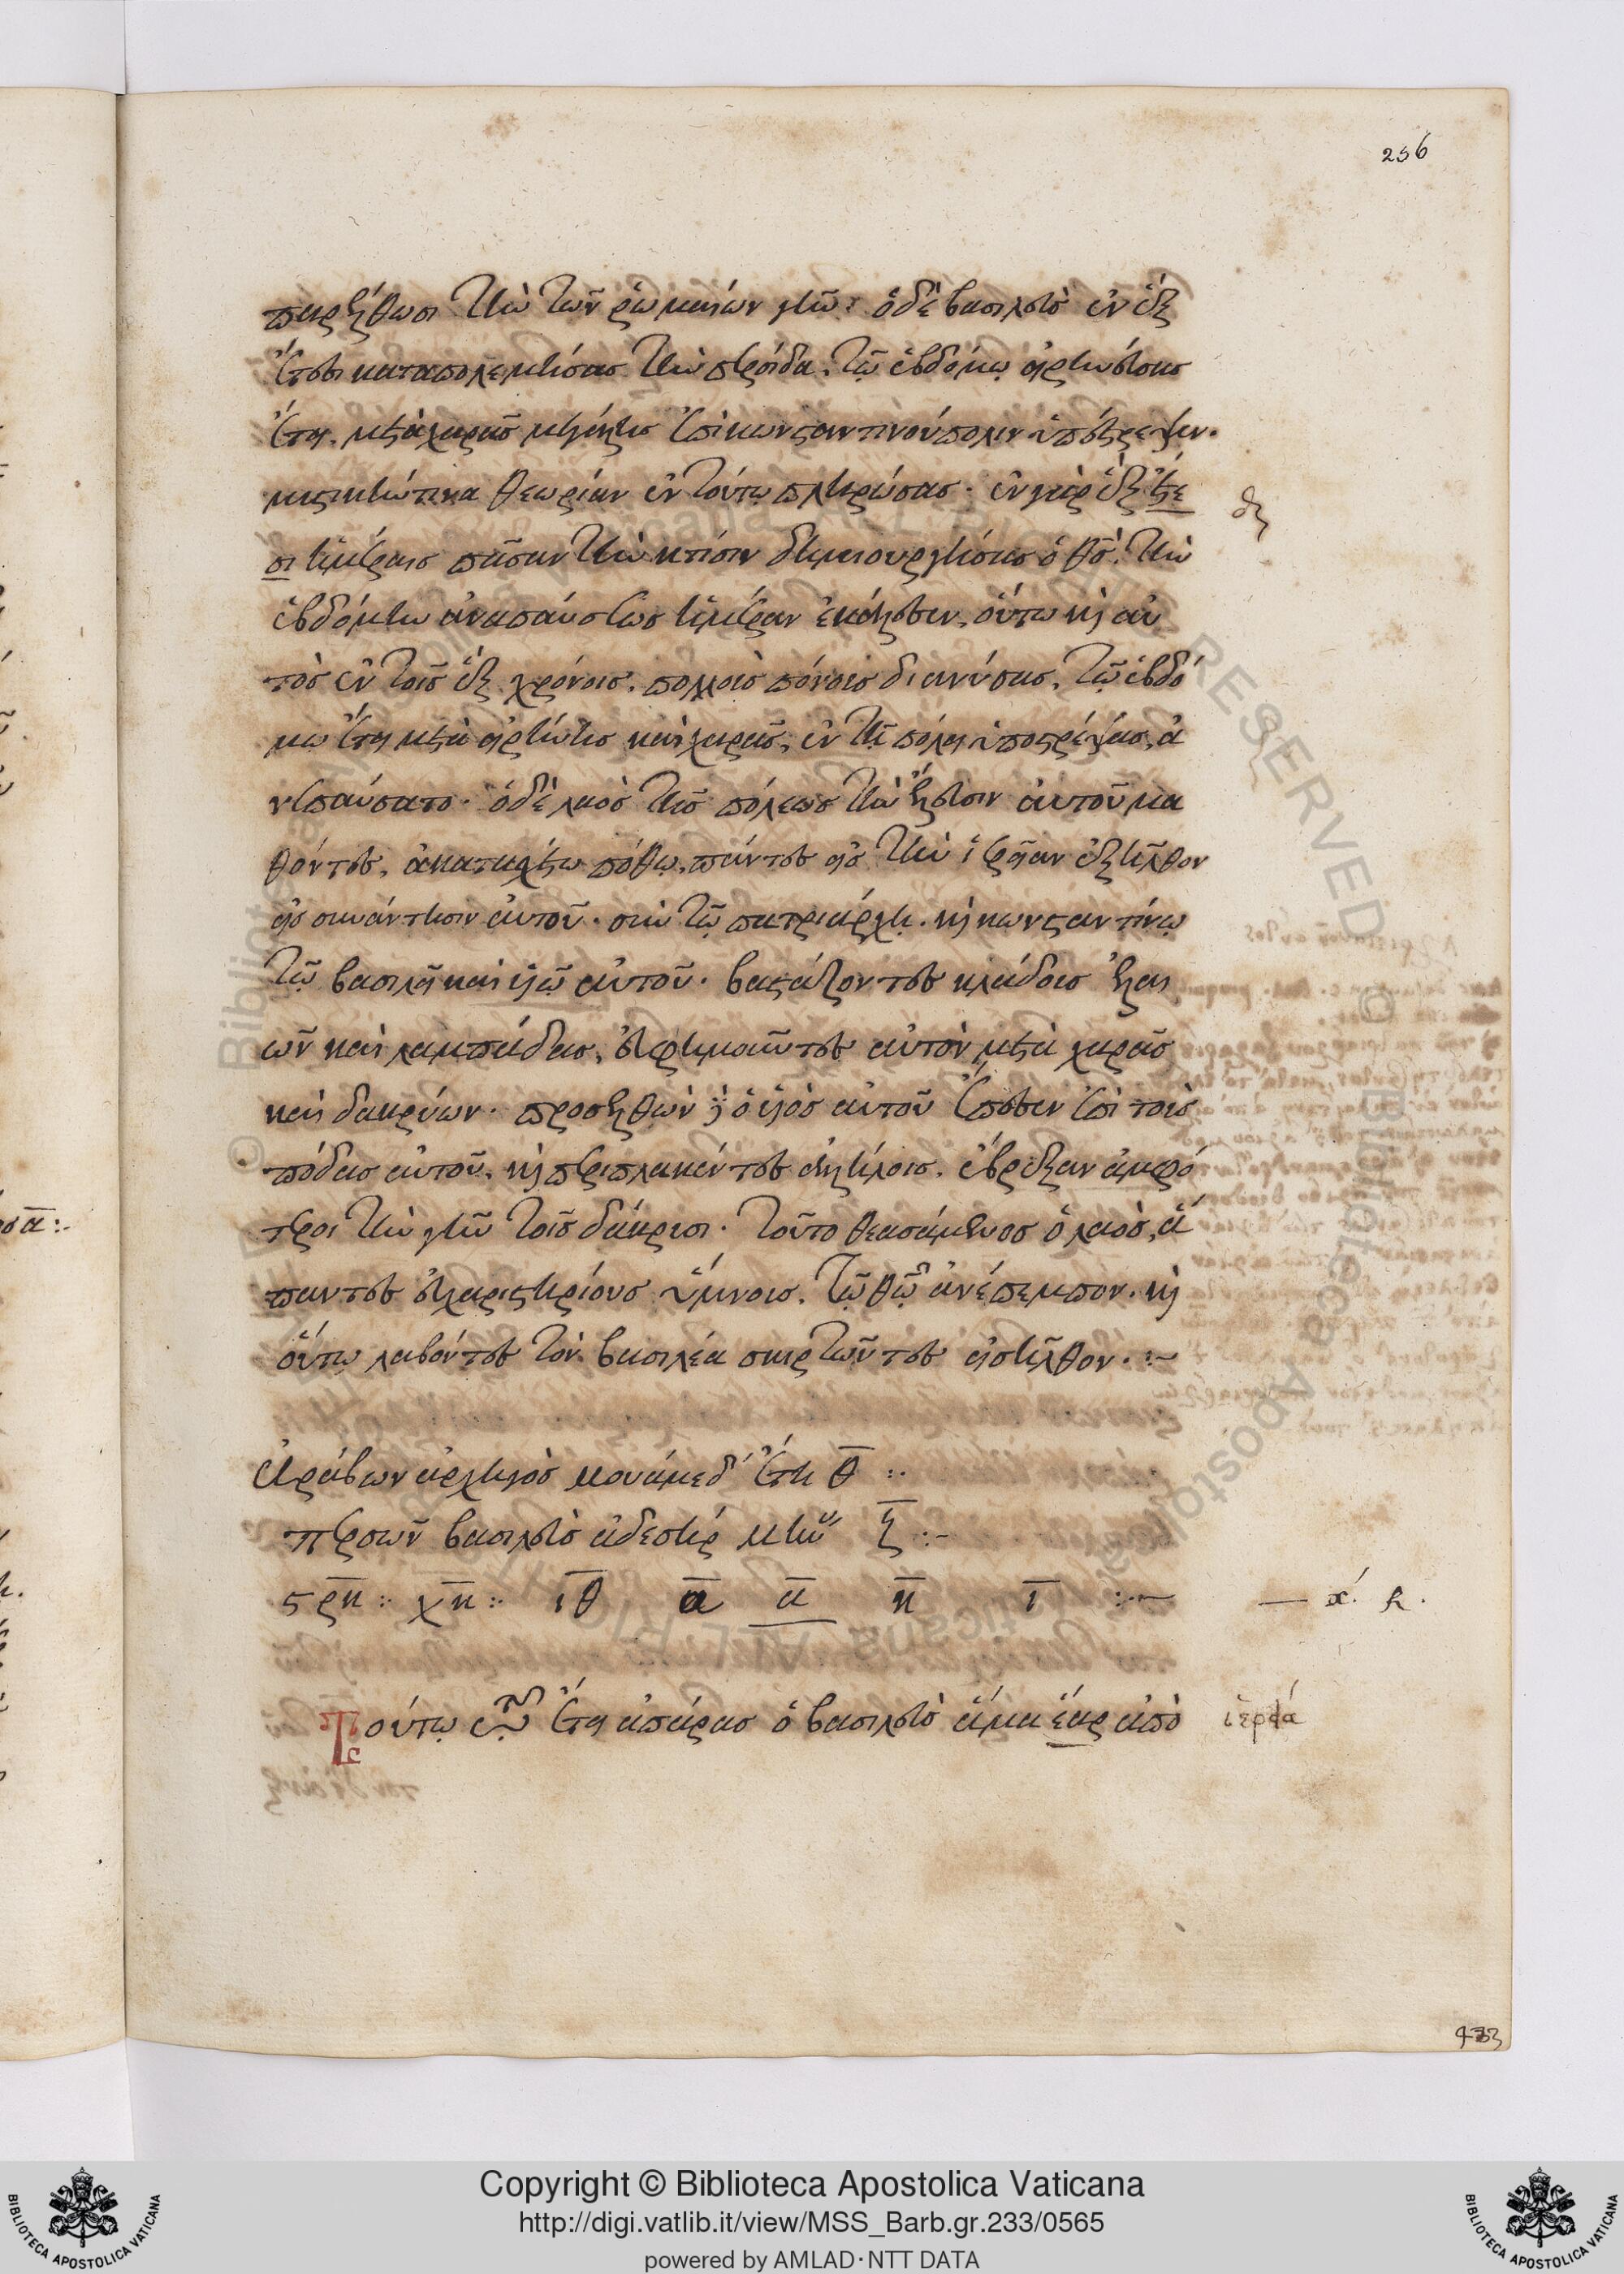 256
παρέλθωσι τὴν τῶν ῥωμαίων γῆν: ὁ δὲ βασιλεὺς ἐν ἓξ
ἔτεσι καταπολεμήσας τὴν περσίδα, τῷ ἑβδόμῳ εἰρηνεύσας
ἔτει, μετὰ χαρᾶς μεγάλης ἐπὶ κωνσταντινούπολιν ὑπέστρεψεν.
μυστικώτινα θεωρίαν ἐν τούτῳ πληρώσας. ἐν γὰρ ἓξ ἔτε
σι ἡμέραις πᾶσαν τὴν κτίσιν δημιουργήσας ὁ θς, τὴν
ἑβδόμην ἀναπαύσεως ἡμέραν ἐκάλεσεν, οὕτω καὶ αὐ
τὸς ἐν τοῖς ἓξ χρόνοις, πολλοὺς πόνους διανύσας, τῷ ἑβδό
μω ἔτει μετὰ εἰρήνης καὶ χαρᾶς, ἐν τῇ πόλει ὑποστρέψας, ἀ
νεπαύσατο. ὁ δὲ λαὸς τῆς πόλεως τὴν ἔλευσιν αὐτοῦ μα
θόντες, ἀκατασχέτω πόθῳ, πάντες εἰς τὴν ἱέρειαν ἐξῆλθον
εἰς συνάντησιν αὐτοῦ. σὺν τῷ πατριάρχῃ. καὶ κωνσταντίνῳ
τῷ βασιλεῖ καὶ υἱῷ αὐτοῦ. βαστάζοντες κλάδους ἐλαι
ῶν καὶ λαμπάδας, εὐφημοῦντες αὐτὸν μετὰ χαρᾶς
καὶ δακρύων. προσελθὼν δὲ ὁ υἱὸς αὐτοῦ ἔπεσεν ἐπὶ τοὺς
πόδας αὐτοῦ, καὶ περιπλακέντες ἀλλήλοις, ἔβρεξαν ἀμφό
τεροι τὴν γῆν τοῖς δάκρυσι. τοῦτο θεασάμενος ὁ λαὸς, ἅ
παντες εὐχαριστηρίους ὕμνους, τῷ θῷ ἀνέπεμπον. καὶ
οὕτῳ λαβόντες τὸν βασιλέα σκιρτῶντες εἰσῆλθον. :~
ἀράβων ἀρχηγὸς μουάμεδ ἔτη θ :.
περσῶν βασιλεὺς ἀδεσὴρ μῆν ζ :-
ϛρκ : χκ : ιθ α α κ ι :~
— α. κ.
Τούτῳ τῷ ἔτει ἀπάρας ὁ βασιλεὺς ἅμα ἔαρ ἀπὸ
473
Copyright © Biblioteca Apostolica Vaticana
http://digi.vatlib.it/view/MSS_Barb.gr.233/0565
powered by AMLAD·NTT DATA
BIBLIOTECA APOSTOLICA VATICANA
BIBLIOTECA APOSTOLICA VATICANA